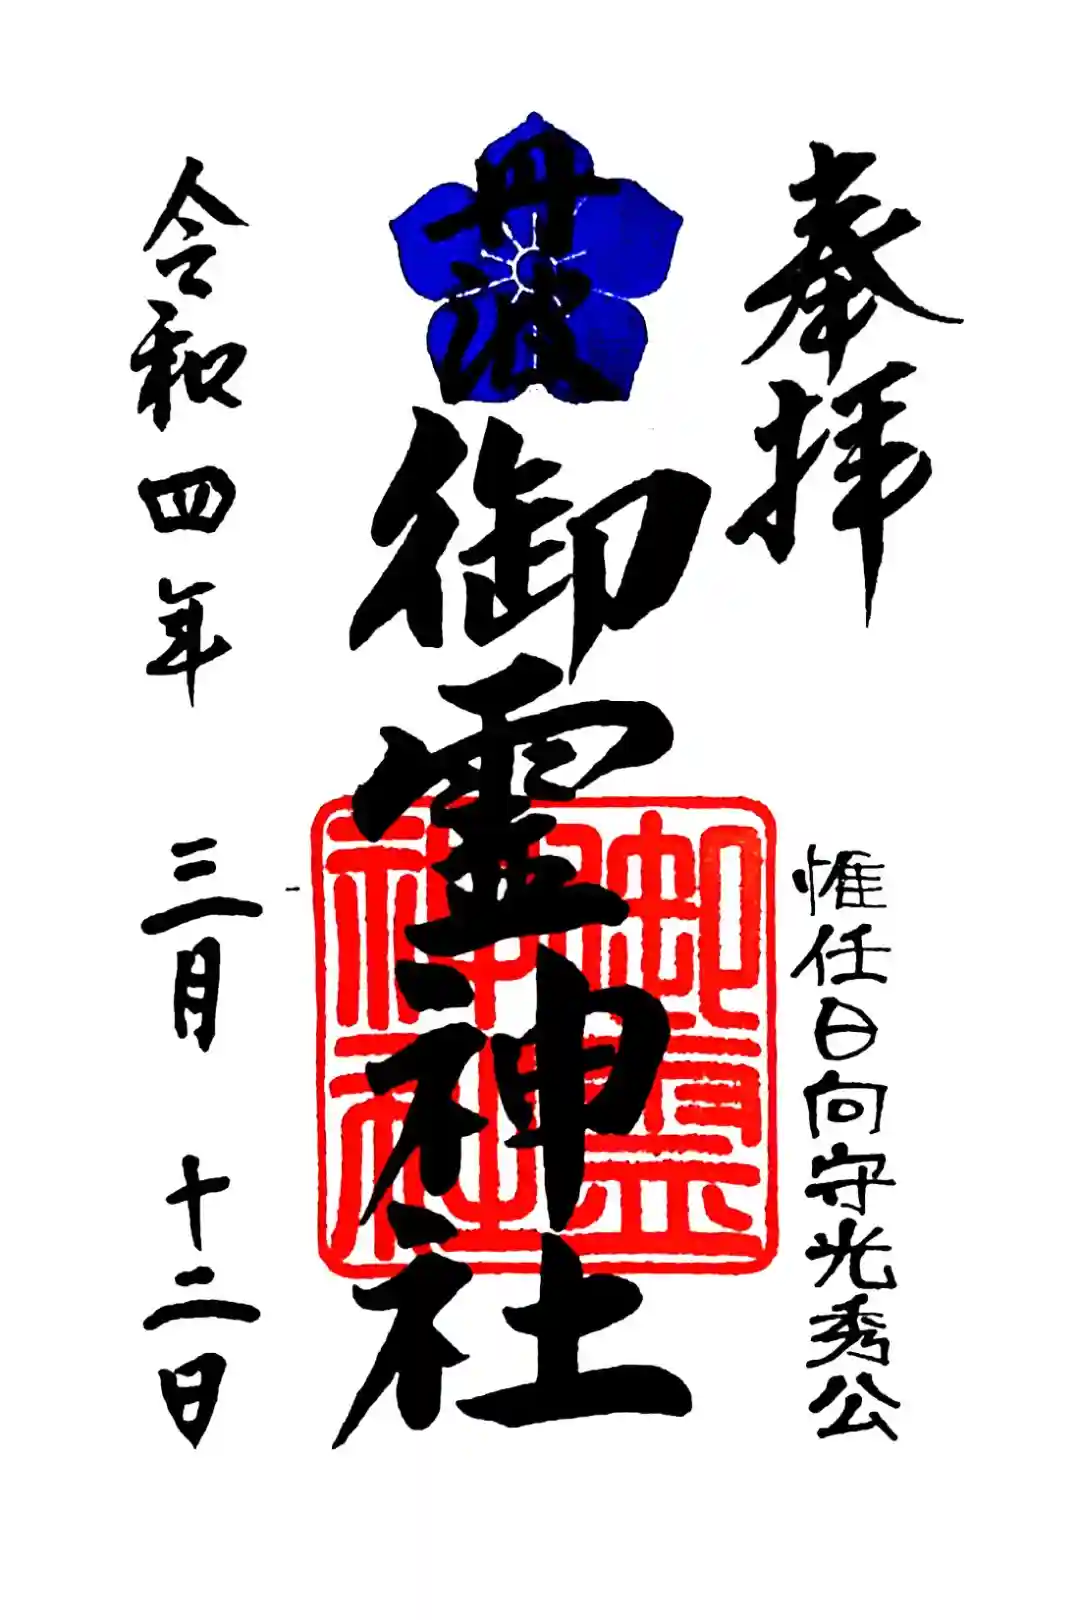 奉拝
惟任日向守光秀公
丹波
御霊神社
御霊神社
令和四年 三月 十二日